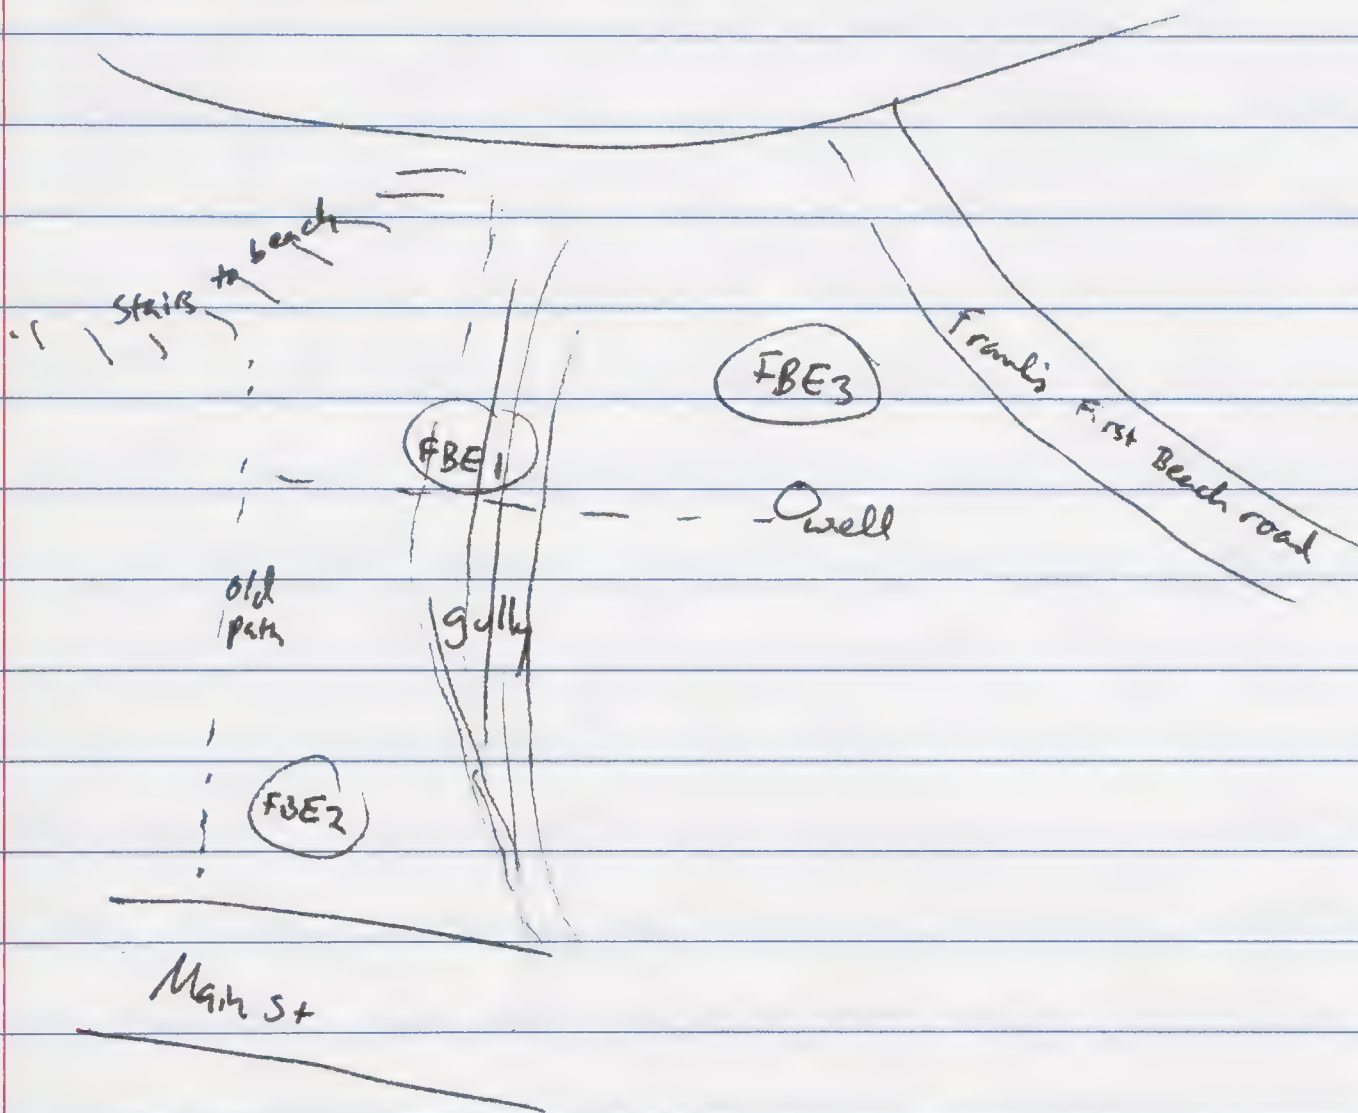 Stairs to beach
FBE3
Franks First Beach road
FBE1
well
old
path
gully
FBE2
Main St